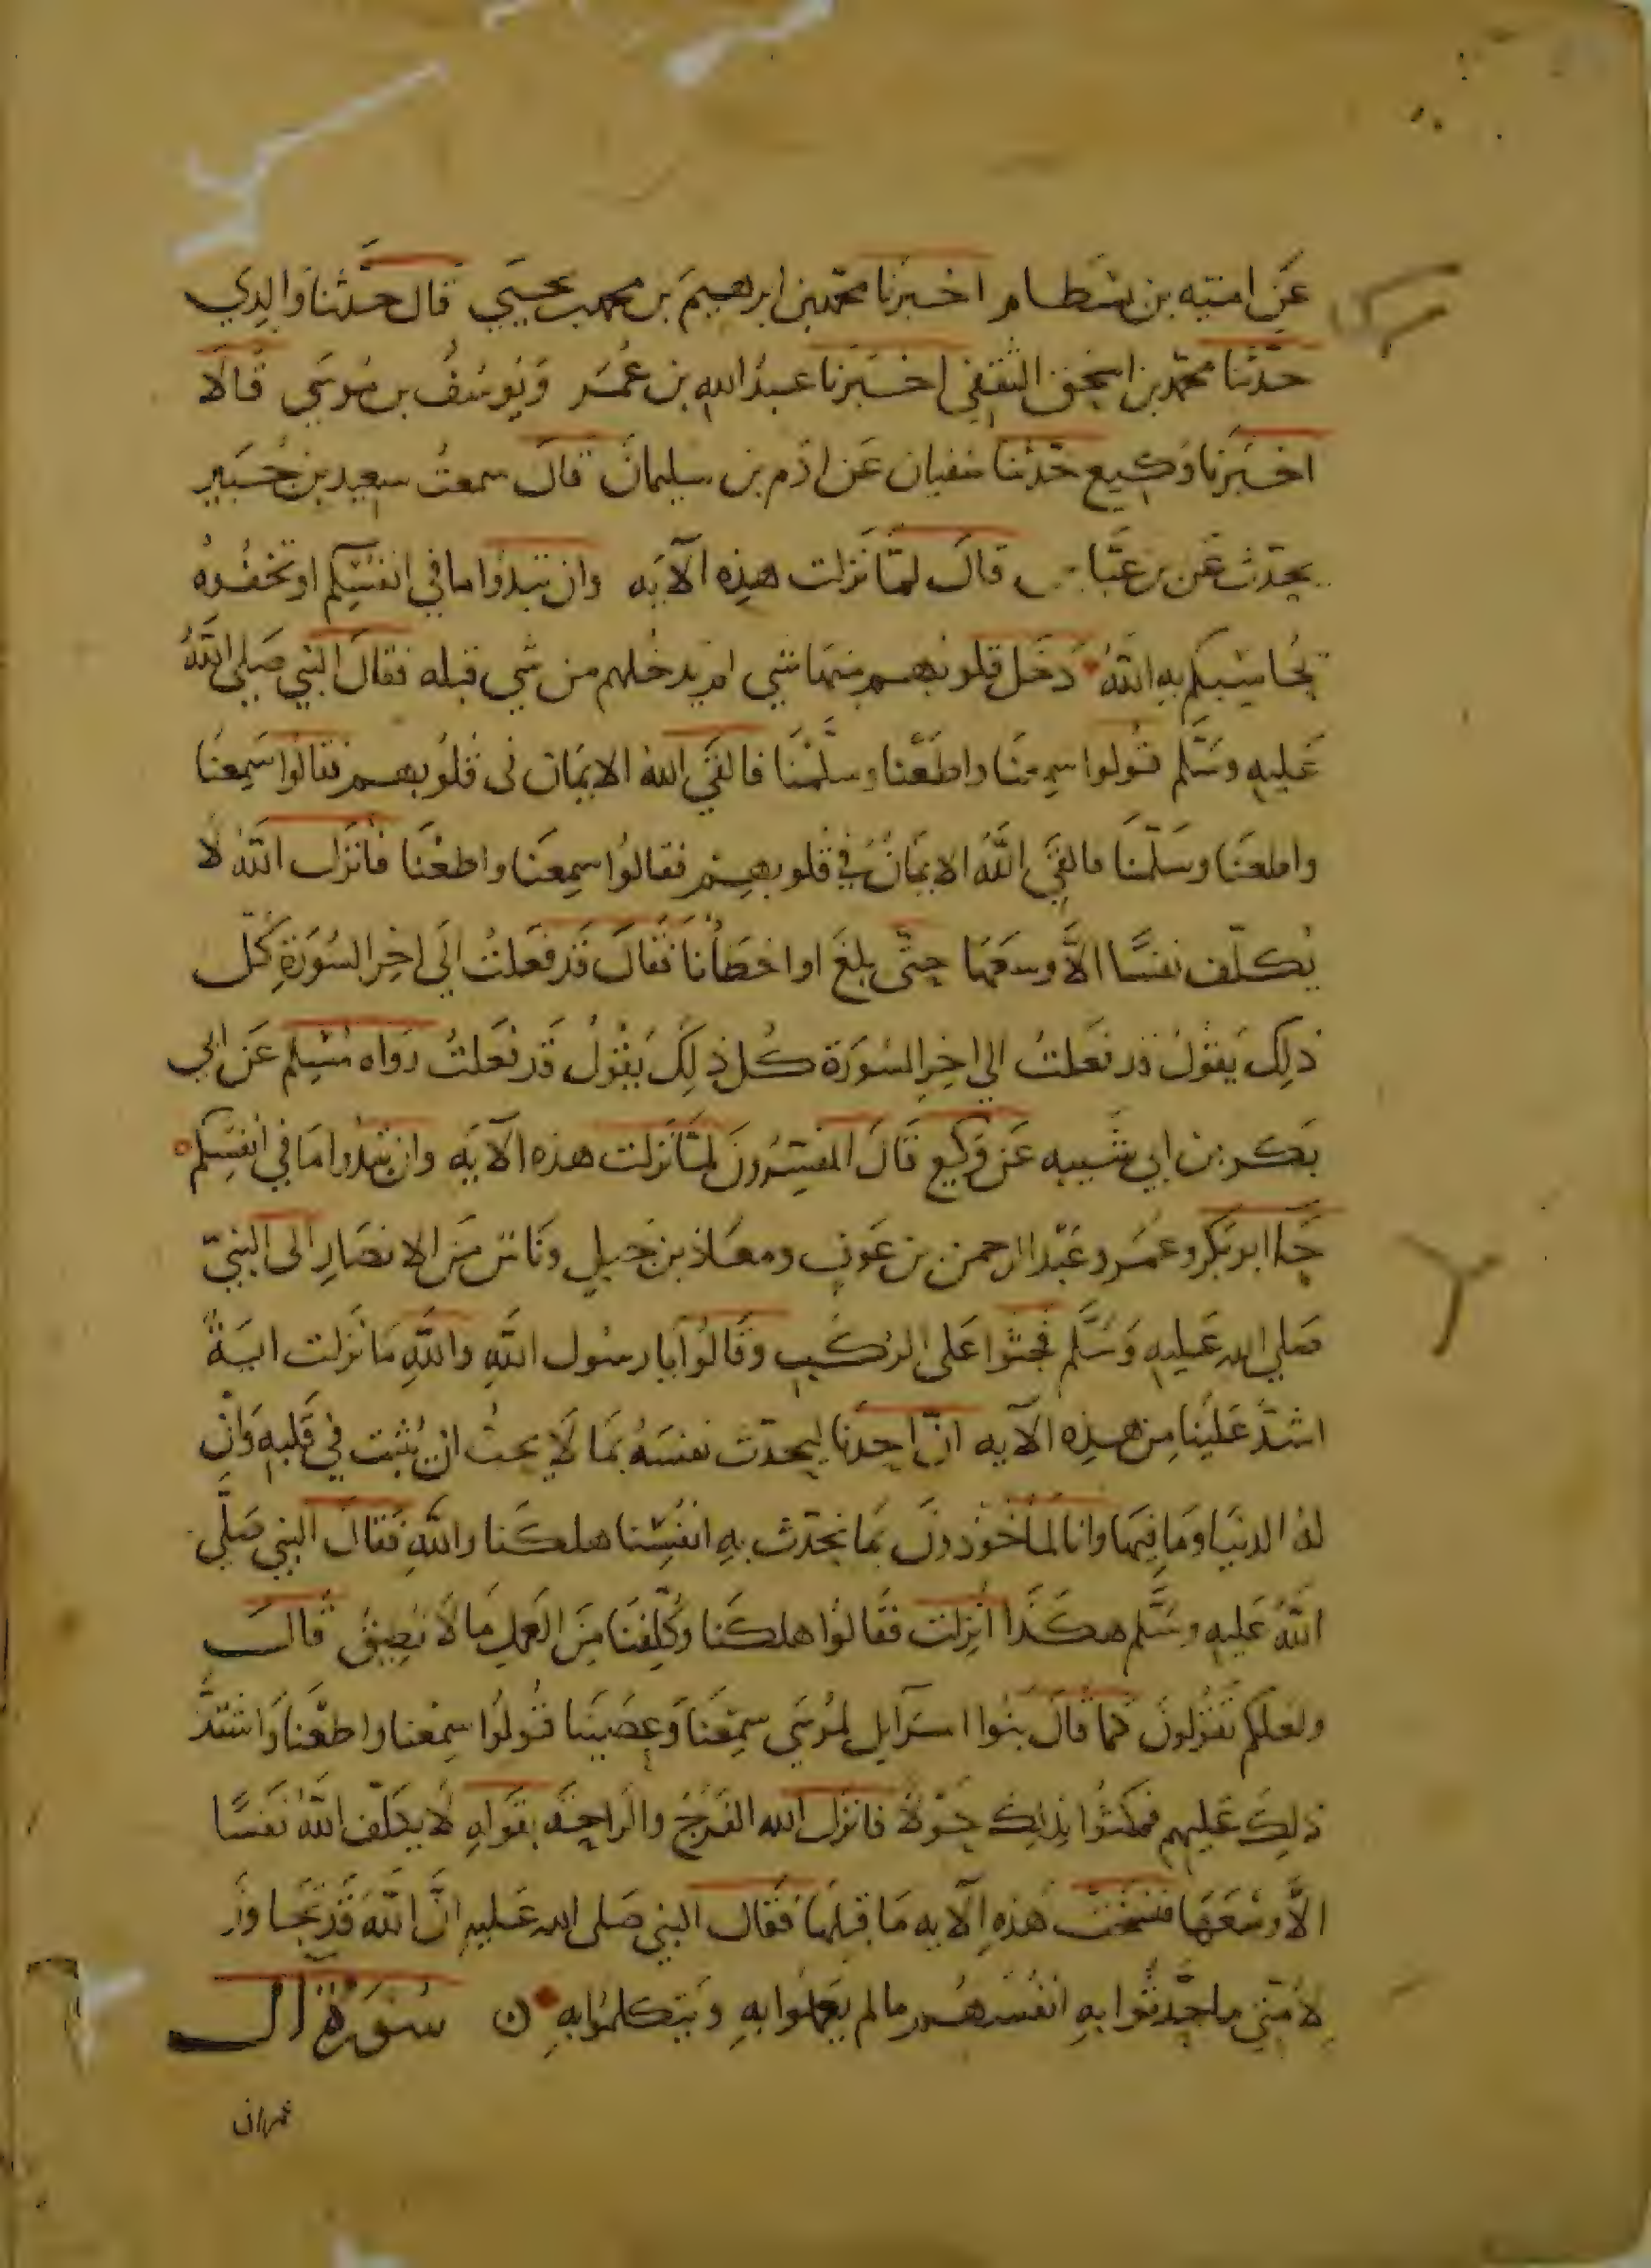 عَن امتيه بن بسَطام اخبَرنا محمد بن ابرهيمَ بن محمد بن يحيَي قال حدّثنا والدِي
حدّثنا محمّد بن اسحق الثقفي اخبَرنا عبدُ الله بن عُمَر وَيُوسُفُ بن مُوسَي قالَا
اخبَرنا وَكيع حَدّثنا سفيان عَن ادَم بن سليمانَ قالَ سمعتُ سعيد بن جُبَير
يحدّث عَن بن عبَّاس قالَ لمّا نَزلت هذِه الآيَه وان تبدُوا ما في انفسِكم او تخفُوهُ
يُحاسِبكم بهِ اللهُ دَخَل قلوبهم منهَا شي لم يدخلهم من شي قبله فقالَ النبي صَلى اللهُ
عَليهِ وسَلّم قُولوا سمِعنَا واطَعْنا وسلَّمْنَا فالقَي اللهُ الايمَان في قلُوبهم فقالوُا سَمِعنَا
واطعنَا وسَلّمنَا فالقَي اللهُ الايمَانَ في قلوبهِم فقالوُا سمِعنَا واطعْنَا فانزَل اللهُ لا
يُكلّف نفسًا الاَّ وسعَهَا حتّى بلغَ او اخطَأنا فقالَ قَد فعَلتُ الَي اخِر السُورَةِ كلّ
ذلِك يَقُولُ قد فعَلتُ الي اخِر السُورَة كُل ذلِكَ يقُولُ قَد فعَلتُ رَواه مُسْلِم عَن ابي
بَكر بن ابي شَيبه عَن وَكيعٍ قَالَ المفسّرُونَ لمَّا نَزلت هذه الآيَه وان تبدُوا مَا في انفُسِكم
جَآ ابو بَكر وعمَر وعَبْد الرحمن بن عَوفٍ ومعَاذ بن جَبلٍ ونَاسٌ مِنَ الانصَارِ الى النبيّ
صلي الله عَليهِ وَسَلّم فجثَوا عَلى الرُكَبِ وقَالُوا يا رسُول اللهِ واللهِ مَا نَزلت ايَةٌ
اشدّ عَلينَا مِن هذِه الآيه انّ احدَنا ليحدّث نفسَهُ بمَا لَا يحبُ ان يُثبت في قَلبهِ وَانّ
لهُ الدنيَا ومَا فِيهَا وانا لمأخُوذونَ بمَا نحدّث بهِ انفُسَنا هلكنا واللهِ فقالَ النبي صَلّي
اللهُ عَليهِ وسَلّم هكَذا انزِلت فقَالُوا هلكنَا وكُلّفنَا مِنَ العَملِ مَا لَا نُطِيقُ قَالَ
ولعلكم تقُولونَ كما قَالَ بنُوا اسرَآيل لمُوسَي سمِعْنَا وعَصَينَا قُولوُا سمِعْنا واطعْنَا وَاشتَدَّ
ذلِكَ عَليهم فمكثُوا بذلِكَ حَوْلًا فانزَل الله الفَرَجَ والرَاحَه بقَولهِ لَا يكلّف اللهُ نفسًا
الاَّ وسْعَهَا فنسَخَتْ هَذهِ الآيه مَا قبلَهَا فقَالَ النبي صَلى الله عَليهِ انَّ اللهَ قَد تجَاوَزَ
لأمّتي ما حدّثُوا بهِ انفُسَهُم ما لم يعَملوا بهِ وَيتَكلمُوا بهِ ن سُورَةُ ال
عمران